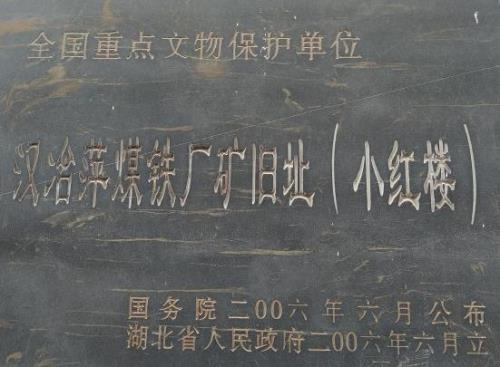 全国重点文物保护单位
汉冶萍煤铁厂矿旧址(小红楼)
国务院二00六年六月公布
湖北省人民政府二00六年六月立